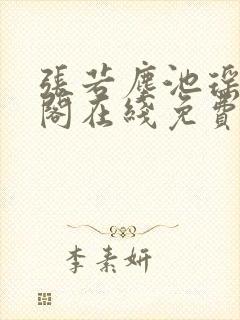 張若塵池瑤
閣在綫免費
李素妍